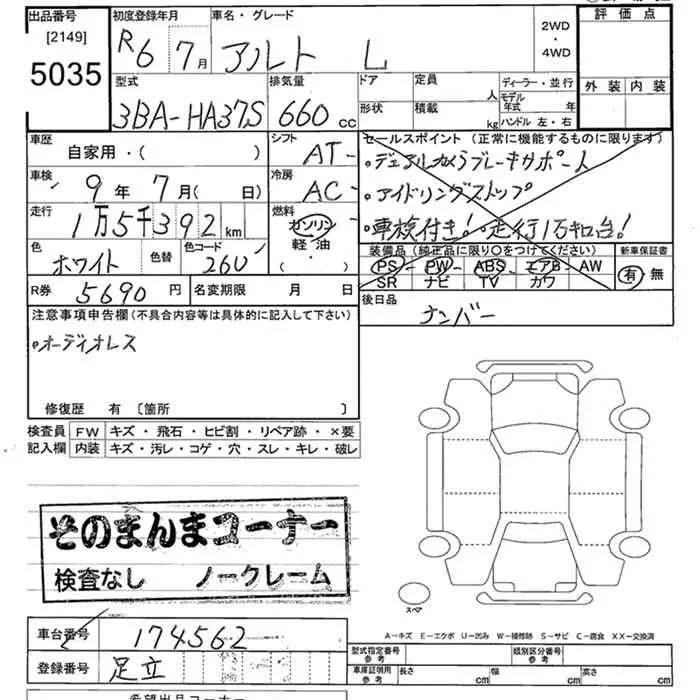 出品番号 初度登録年月 車名・グレード 評価点
[2149] R6 7月 アルト L 2WD・4WD
5035
型式 排気量 ドア 定員 ディーラー・並行 外装 内装
3BA-HA37S 660 cc 形状 積載 人 kg モデル年式 年 ハンドル 左・右
車歴 シフト セールスポイント (正常に機能するものに限ります)
自家用・( ) AT- ・デュアルカメラブレーキサポート
車検 冷房 ・アイドリングストップ
9年 7月( 日) AC- ・車検付き! 走行1万キロ台!
走行 燃料
1万5千392 km ガソリン
軽油
( )
色 色替 色コード 装備品 (純正品に限り○をつけてください) 新車保証書
ホワイト 26U PS-PW-ABS-エアB-AW 有・無
SR ナビ TV カワ
R券 5690円 名変期限 月 日 後日品
ナンバー
注意事項申告欄(不具合内容等は具体的に記入して下さい)
・オーディオレス
修復歴 有 [箇所 ]
検査員 FW キズ・飛石・ヒビ割・リペア跡・×要
記入欄 内装 キズ・汚レ・コゲ・穴・スレ・キレ・破レ
そのまんまコーナー
検査なし ノークレーム
スペア
A-キズ E-エクボ U-凹み W-補修跡 S-サビ C-腐食 XX-交換済
車台番号 174562 型式指定番号 参考 類別区分番号 参考
登録番号 足立 車庫証明用 参考 長さ cm 幅 cm 高さ cm
希望出品コーナー